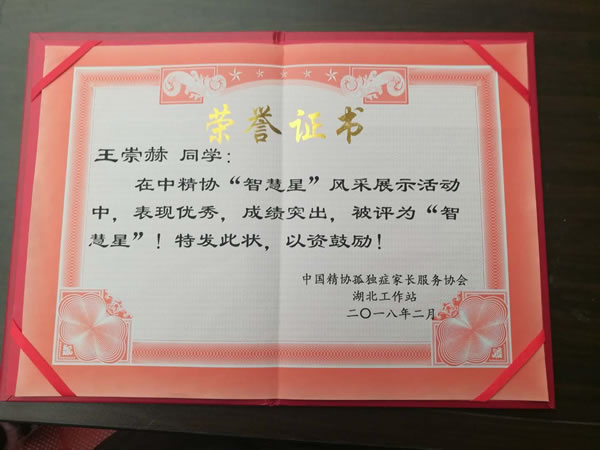 荣誉证书
王崇赫 同学：
在中精协“智慧星”风采展示活动
中，表现优秀，成绩突出，被评为“智
慧星”！特发此状，以资鼓励！
中国精协孤独症家长服务协会
湖北工作站
二〇一八年二月